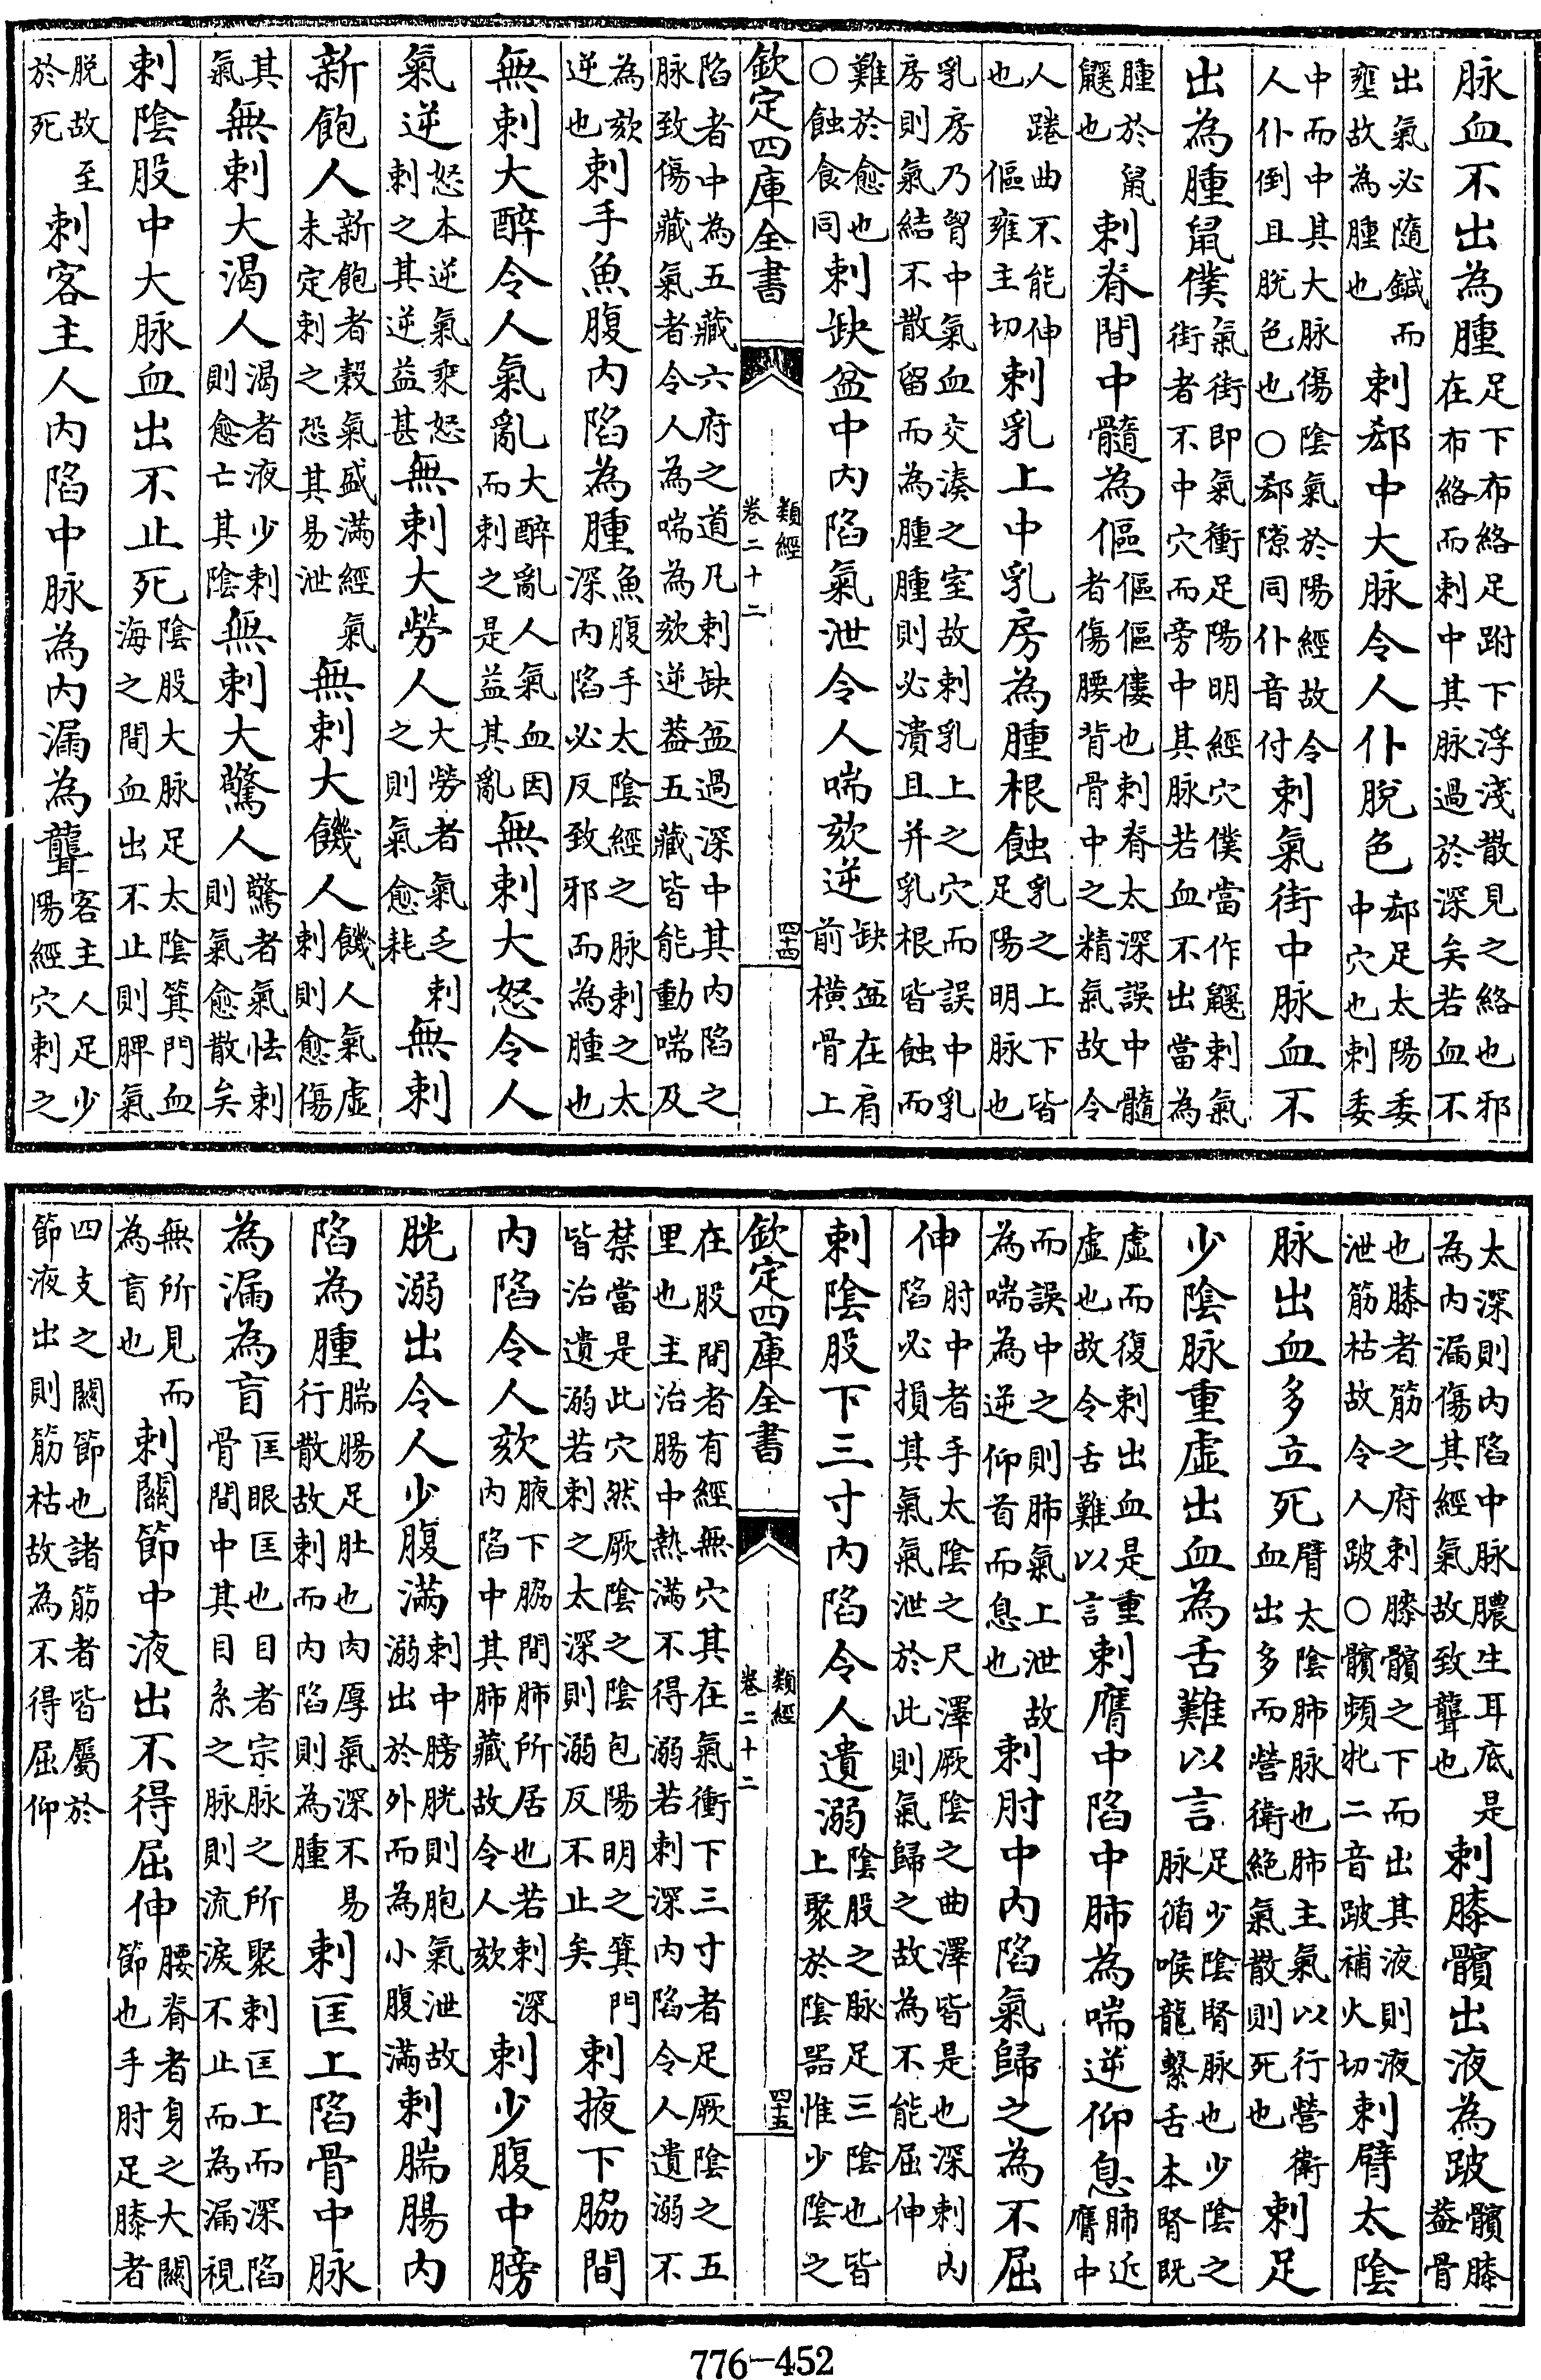 脉血不出為腫足下布絡足跗下浮淺散見之絡也邪在布絡而刺中其脉過於深矣若血不
出氣必隨鍼而壅故為腫也刺郄中大脉令人仆脫色郄足太陽委中穴也刺委
中而中其大脉傷陰氣於陽經故令人仆倒且脫色也○郄隙同仆音付刺氣街中脉血不
出為腫鼠僕氣街即氣衝足陽明經穴僕當作鼴刺氣街者不中穴而旁中其脉若血不出當為
腫於鼠鼴也刺脊間中髓為傴傴傴僂也刺脊太深誤中髓者傷腰背骨中之精氣故令
人踡曲不能伸也 傴雍主切刺乳上中乳房為腫根蝕乳之上下皆足陽明脉也
乳房乃胷中氣血交湊之室故刺乳上之穴而誤中乳房則氣結不散留而為腫腫則必潰且并乳根皆蝕而
難於愈也○蝕食同刺缺盆中内陷氣泄令人喘欬逆缺盆在肩前橫骨上
欽定四庫全書 類經 卷二十二 四十四
陷者中為五藏六府之道凡刺缺盆過深中其内陷之脉致傷藏氣者令人為喘為欬逆葢五藏皆能動喘及
為欬逆也刺手魚腹内陷為腫魚腹手太陰經之脉刺之太深内陷必反致邪而為腫也
無刺大醉令人氣亂大醉亂人氣血因而刺之是益其亂無刺大怒令人
氣逆怒本逆氣乘怒刺之其逆益甚無刺大勞人大勞者氣乏刺之則氣愈耗無刺
新飽人新飽者穀氣盛滿經氣未定刺之恐其易泄無刺大饑人饑人氣虛刺則愈傷
其氣無刺大渴人渴者液少刺則愈亡其陰無刺大驚人驚者氣怯刺則氣愈散矣
刺陰股中大脉血出不止死陰股大脉足太陰箕門血海之間血出不止則脾氣
脱故至於死刺客主人内陷中脉為内漏為聾客主人足少陽經穴刺之
太深則内陷中脉膿生耳底是為内漏傷其經氣故致聾也刺膝髕出液為跛髕膝葢骨
也膝者筋之府刺膝髕之下而出其液則液泄筋枯故令人跛○髕頻牝二音跛補火切刺臂太陰
脉出血多立死臂太陰肺脉也肺主氣以行營衛血出多而營衛絶氣散則死也刺足
少陰脉重虛出血為舌難以言足少陰腎脉也少陰之脉循喉嚨繫舌本腎既
虛而復刺出血是重虛也故令舌難以言刺膺中陷中肺為喘逆仰息肺近膺中
而誤中之則肺氣上泄故為喘為逆仰首而息也刺肘中内陷氣歸之為不屈
伸肘中者手太陰之尺澤厥陰之曲澤皆是也深刺内陷必損其氣氣泄於此則氣歸之故為不能屈伸
刺陰股下三寸内陷令人遺溺陰股之脉足三陰也皆上聚於陰器惟少陰之
欽定四庫全書 類經 卷二十二 四十五
在股間者有經無穴其在氣衝下三寸者足厥陰之五里也主治腸中熱滿不得溺若刺深内陷令人遺溺不
禁當是此穴然厥陰之陰包陽明之箕門皆治遺溺若刺之太深則溺反不止矣刺掖下脇間
内陷令人欬腋下脇間肺所居也若刺深内陷中其肺藏故令人欬刺少腹中膀
胱溺出令人少腹滿刺中膀胱則胞氣泄故溺出於外而為小腹滿刺腨腸内
陷為腫腨腸足肚也肉厚氣深不易行散故刺而内陷則為腫刺匡上陷骨中脉
為漏為盲匡眼匡也目者宗脉之所聚刺匡上而深陷骨間中其目系之脉則流淚不止而為漏視
無所見而為盲也刺關節中液出不得屈伸腰脊者身之大關節也手肘足膝者
四支之關節也諸筋者皆屬於節液出則筋枯故為不得屈仰
776-452